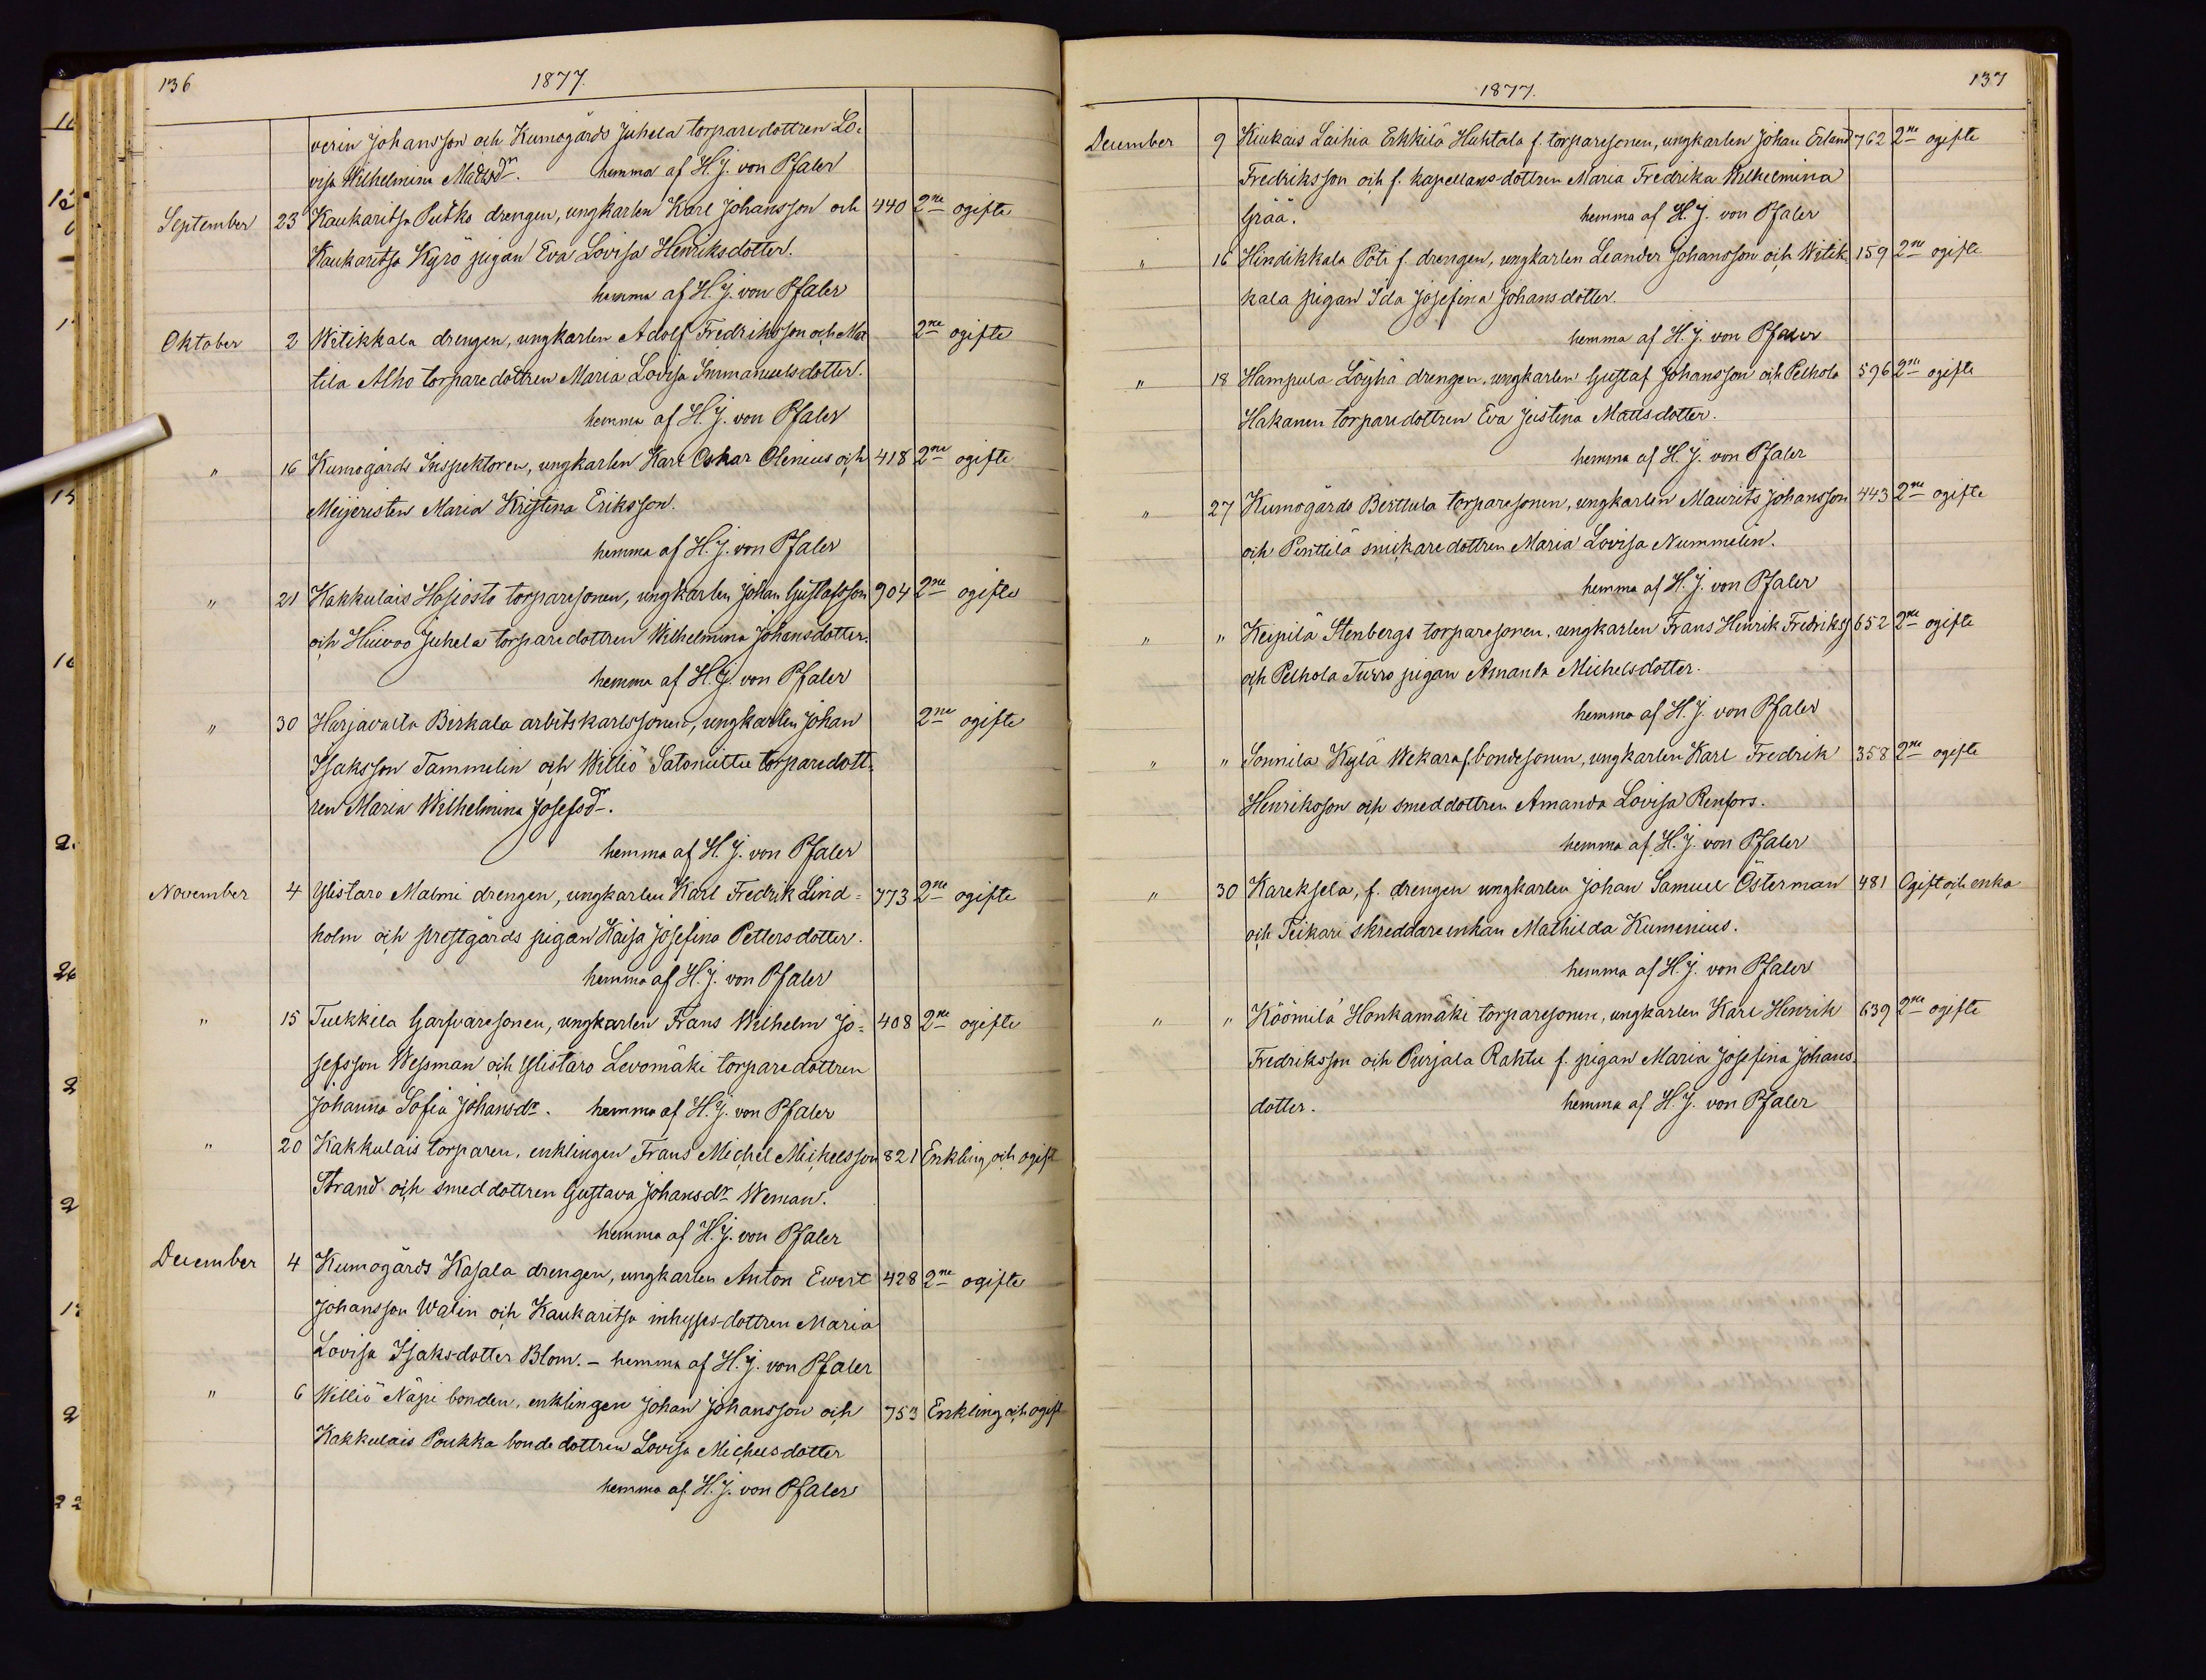 136
1877.
verin Johansson och Kumogårds Juhela torparedottren Lo-
visa Wilhelmina Mattsdr. hemma af H. J. von Pfaler
September 23 Kaukaritsa Putko drengen, ungkarlen Karl Johansson och 440 2ne ogifte
Kaukaritsa Kyrö pigan Eva Lovisa Henriksdotter.
hemma af H. J. von Pfaler
Oktober 2 Witikkala drengen, ungkarlen Adolf Fredriksson och Mat 2ne ogifte
tila Alho torparedottren Maria Lovisa Immanuelsdotter.
hemma af H. J. von Pfaler
" 16 Kumogårds Inspektoren, ungkarlen Karl Oskar Olenius och 418 2ne ogifte
Meijeristen Maria Kristina Eriksson.
hemma af H. J. von Pfaler
" 21 Kakkulais Hosiosto torparesonen, ungkarlen Johan Gustafsson 904 2ne ogifte
och Huivoo Juhela torparedottren Wilhelmina Johansdotter.
hemma af H. J. von Pfaler
" 30 Harjavalta Birkala arbetskarlssonen, ungkarlen Johan 2ne ogifte
Isaksson Tammelin och Williö Satoniittu torparedott-
ren Maria Wilhelmina Josefsdr.
hemma af H. J. von Pfaler
November 4 Ylistaro Malmi drengen, ungkarlen Karl Fredrik Lind- 773 2ne ogifte
holm och prestgårds pigan Kaisa Josefina Pettersdotter.
hemma af H. J. von Pfaler
" 15 Tulkkila Garfvaresonen, ungkarlen Frans Wilhelm Jo- 408 2ne ogifte
sefsson Wessman och Ylistaro Levomäki torparedottren
Johanna Sofia Johansdr. hemma af H. J. von Pfaler
" 20 Kakkulais torparen, enklingen Frans Michel Michelsson 821 Enkling och ogift
Strand och smeddottren Gustava Johansdr Weman.
hemma af H. J. von Pfaler
December 4 Kumogårds Kasala drengen, ungkarlen Anton Evert 428 2ne ogifte
Johansson Walin och Kaukaritsa inhyses-dottren Maria
Lovisa Isaks-dotter Blom. - hemma af H. J. von Pfaler
" 6 Williö Näpi bonden, enklingen Johan Johansson och 753 Enkling och ogift
Kakkulais Poukka bondedottren Lovisa Michelsdotter
hemma af H. J. von Pfaler
137
1877.
December 9 Kiukais Laihia Erkkilä Huhtala f. torparesonen, ungkarlen Johan Erland 762 2ne ogifte
Fredriksson och f. kapellans-dottren Maria Fredrika Wilhelmina
Gråå. hemma af H. J. von Pfaler
" 16 Hindikkala Poti f. drengen, ungkarlen Leander Johansson och Witik 159 2ne ogifte
kala pigan Ida Josefina Johansdotter.
hemma af H. J. von Pfaler
" 18 Hampula Löyhä drengen, ungkarlen Gustaf Johansson och Pelhola 596 2ne ogifte
Hakanen torparedottren Eva Justina Mattsdotter.
hemma af H. J. von Pfaler
" 27 Kumogårds Bertlula torparesonen, ungkarlen Maurits Johansson 443 2ne ogifte
och Penttilä snickaredottren Maria Lovisa Nummelin.
hemma af H. J. von Pfaler
" " Keipilä Stenbergs torparesonen, ungkarlen Frans Henrik Fredrikss 652 2ne ogifte
och Pelhola Turro pigan Amanda Michelsdotter.
hemma af H. J. von Pfaler
" " Sonnila Kylä Wekara f. bondesonen, ungkarlen Karl Fredrik 358 2ne ogifte
Henriksson och smeddottren Amanda Lovisa Renfors.
hemma af H. J. von Pfaler
" 30 Kareksela, f. drengen ungkarlen Johan Samuel Österman 481 Ogift och enka
och Teikari skreddareenkan Mathilda Kumenius.
hemma af H. J. von Pfaler
" " Köömilä Honkamäki torparesonen, ungkarlen Karl Henrik 639 2ne ogifte
Fredriksson och Purjala Rahtu f. pigan Maria Josefina Johans-
dotter. hemma af H. J. von Pfaler